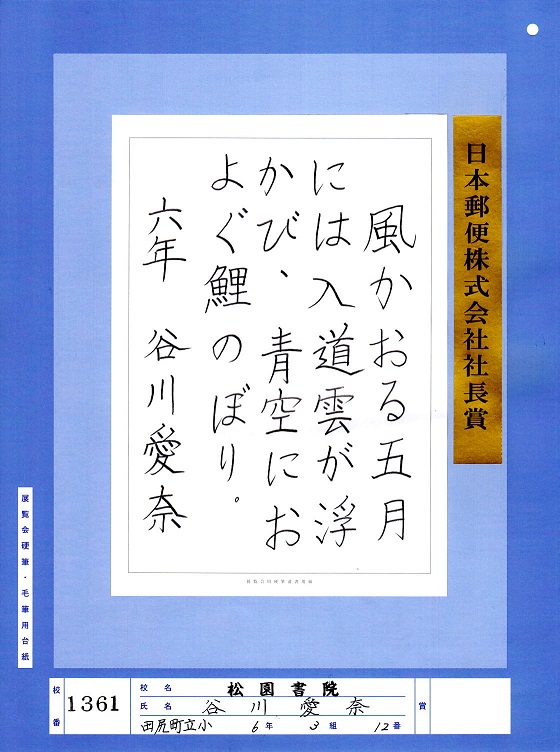 日本郵便株式会社社長賞
風かおる五月
には入道雲が浮
かび、青空にお
よぐ鯉のぼり。
六年 谷川愛奈
展覧会硬筆・毛筆用台紙
校番 1361
校名 松園書院
氏名 谷川愛奈
田尻町立小 6年 3組 12番
賞